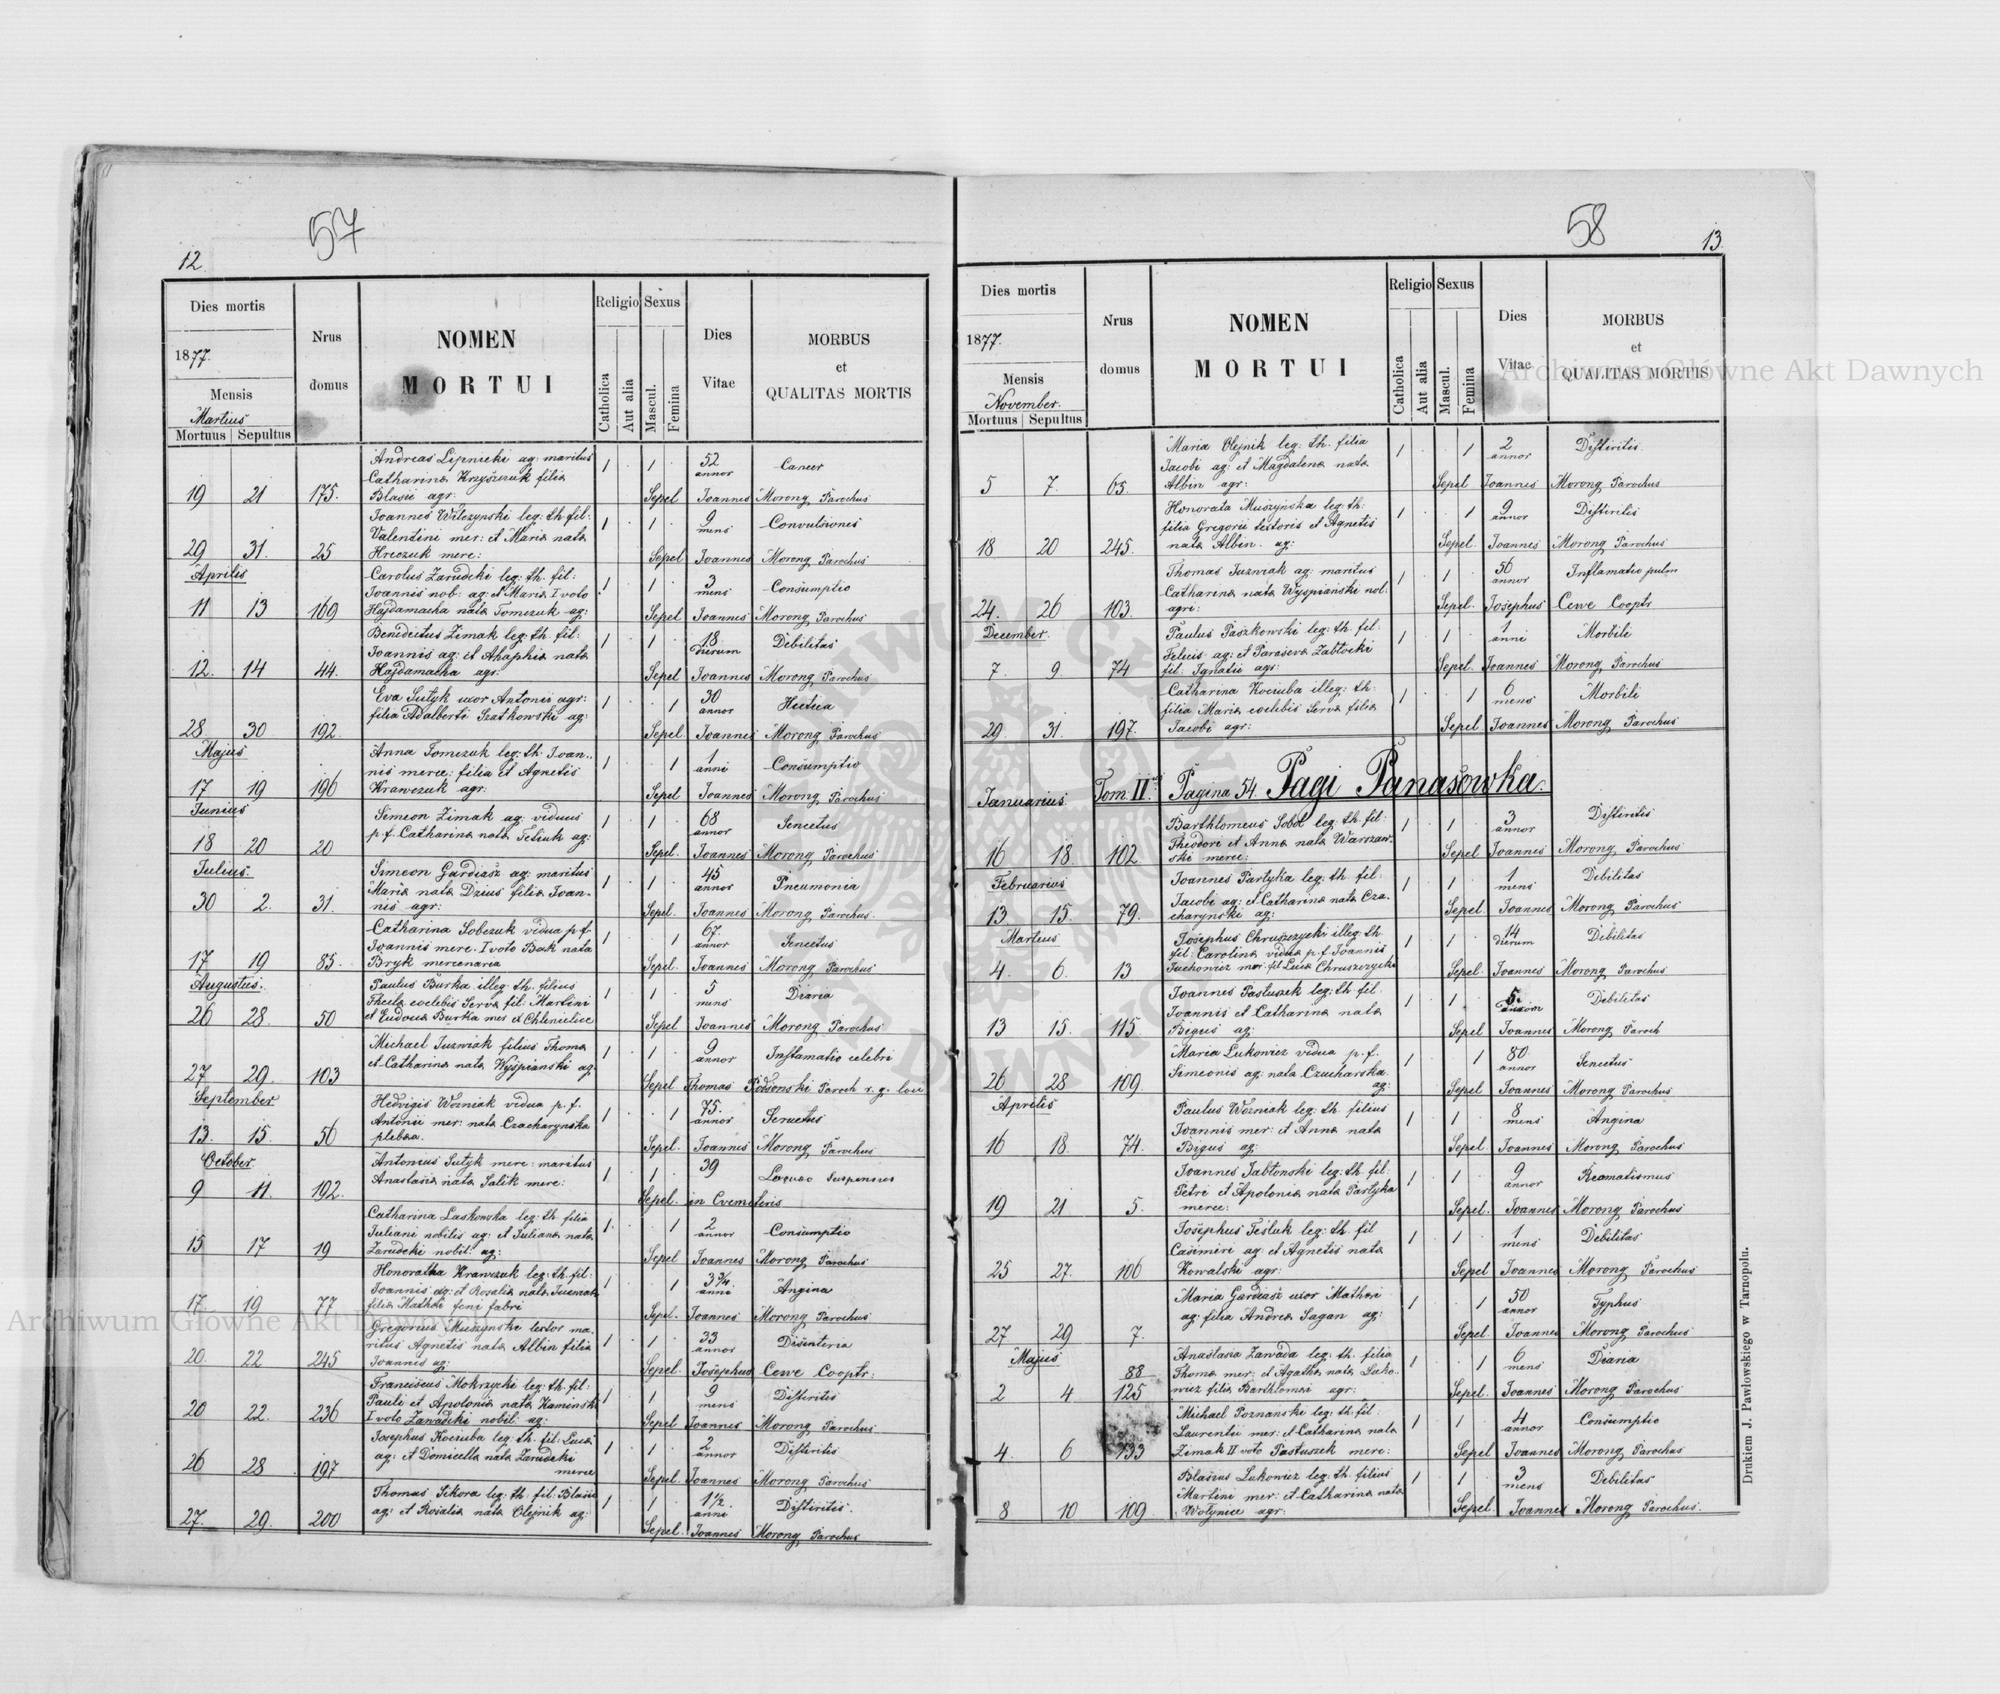 57
12.
Dies mortis
1877.
Mensis
Martius
Mortuus Sepultus
Nrus
domus
NOMEN
MORTUI
Religio
Catholica
Aut alia
Sexus
Mascul.
Femina
Dies
Vitae
MORBUS
et
QUALITAS MORTIS
Andreas Lipnicki ag: maritus 1 1 52 annor Cancer
Catharina Krzyszczuk filia
19 21 175. Blasii agr: Sepel Joannes Morong Parochus
Joannes Wilczynski leg: th. fil: 1 1 9 mens Convulsiones
Valentini mer: et Maria nata
29 31. 25 Hreczuk merc: Sepel Joannes Morong Parochus
Aprilis
Carolus Zarudcki leg: th. fil: 1 1 3 mens Consumptio
Joannis nob: ag: et Maria I voto
11 13 169 Hajdamacha nata Tomczuk ag: Sepel Joannes Morong Parochus
Benedictus Zimak leg: th. fil: 1 1 18 dierum Debilitas
Joannis ag: et Ahaphia nata
12. 14 44. Hajdamacha agr: Sepel Joannes Morong Parochus
Eva Sutyk uxor Antonii agr: 1 1 30 annor Hectica
filia Adalberti Szatkowski ag:
28. 30 192. Sepel Joannes Morong Parochus
Majus
Anna Tomczuk leg: th. Joan- 1 1 1 anni Consumptio
nis merc: filia et Agnetis
17 19 196 Krawczuk agr: Sepel Joannes Morong Parochus
Junius
Simeon Zimak ag: viduus 1 1 68 annor Senectus
p. f. Catharina nata Teliuk ag:
18 20 20 Sepel. Joannes Morong Parochus
Julius.
Simeon Gardiasz ag: maritus 1 1 45 annor Pneumonia
Maria nata Dzius filia Joan-
30 2. 31. nis agr: Sepel. Joannes Morong Parochus.
Catharina Sobczuk vidua p. f. 1 1 67. annor Senectus
Joannis merc. I voto Bak nata
17 19 85. Bryk mercenaria Sepel. Joannes Morong Parochus
Augustus.
Paulus Burka illeg: th. filius 1 1 5 mens Diaria
Thecla coelibis Serva fil: Martini
26 28. 50 et Eudocia Burka mer et Sepel Joannes Morong Parochus
Michael Juzwiak filius Thoma 1 1 9 annor Inflamatio celebri
et Catharina nata Wyspianski ag:
27 29. 103 Sepel Thomas Paroch r. g. loci
September
Hedvigis Wozniak vidua p. f. 1 1 75. annor Senectus
Antonii mer: nata Czacharynska
13. 15. 56 plebea. Sepel. Joannes Morong Parochus
October
Antonius Sutyk merc: maritus 1 1 39 Laqueo Suspensus
Anastasia nata Salik merc:
9 11. 192. Sepel. in Cvemeteris
Catharina Laskowska leg: th. filia 1. 1 2 annor Consumptio
Juliani nobilis ag: et Juliana nata
15 17 19 Zarudcki nobil: ag: Sepel Joannes Morong Parochus
Honoratha Krawczuk leg: th. fil: 1 1 3¾ anni Angina
Joannis ag: et Rosalia nata Juzwiak
17. 19 77 filia Mathei feni fabri Sepel. Joannes Morong Parochus
Gregorius Muszynski textor ma- 1 1 33 annor Disinteria
ritus Agnetis nata Albin filia
20. 22 245 Joannis ag: Sepel. Josephus Cewe Cooptr:
Franciscus Mokrzycki leg: th. fil: 1 1 9 mens Diftiritis
Pauli et Apolonia nata Kaminski
20 22. 236 I voto Zawadcki nobil: ag: Sepel Joannes Morong Parochus
Josephus Kociuba leg: th. fil: Luca 1 1 2 annor Diftiritis
ag: et Domicella nata Zarudcki
26 28 197 merc Sepel Joannes Morong Parochus
Thomas Sikora leg: th. fil: Blasii 1 1 1½. anni Diftiritis.
ag: et Rosalia nata Olejnik ag:
27. 29. 200 Sepel. Joannes Morong Parochus
58
13.
Dies mortis
1877.
Mensis
November.
Mortuus Sepultus
Nrus
domus
NOMEN
MORTUI
Religio
Catholica
Aut alia
Sexus
Mascul.
Femina
Dies
Vitae
MORBUS
et
QUALITAS MORTIS
Maria Olejnik leg: th. filia 1 1 2 annor Diftiritis.
Jacobi ag: et Magdalena nata
5 7. 65. Albin agr: Sepel Joannes Morong Parochus
Honorata Muszynska leg: th: 1 1 9 annor Diftiritis
filia Gregorii textoris et Agnetis
18 20 245. nata Albin. ag: Sepel. Joannes Morong Parochus
Thomas Juzwiak ag: maritus 1 1 56 annor Inflamatio pulm
Catharina nata Wyspianski nol:
24. 26 103. agri: Sepel. Josephus Cewe Cooptr.
December.
Paulus Paszkowski leg: th. fil: 1 1 1 anni Morbili
Felicis ag: et Parasceva Zablocki
7. 9 74 fil. Ignatii agr: Sepel. Joannes Morong Parochus
Catharina Kociuba illeg: th: 1 1 6 mens Morbili
filia Maria coelibis Serva filia
29. 31. 197. Jacobi agr: Sepel Joannes Morong Parochus
Januarius. Tom II. Pagina 54. Pagi Panasówka.
Barthlomeus Sobol leg: th. fil: 1 1 3 annor Diftiritis
Theodori et Anna nata Warszaw-
16 18 102. ski merc: Sepel Joannes Morong Parochus
Februarius
Joannes Partyka leg: th. fil: 1 1 1 mens Debilitas
Jacobi ag: et Catharina nata Cza-
13 15. 79. charynski ag: Sepel. Joannes Morong Parochus
Martius
Josephus Chruszczycki illeg: th. 1 1 14 dierum Debilitas
fil: Carolina vidua p. f. Joannis
4. 6. 13 Juchowicz mer: fil Luca Chruszczycki Sepel. Joannes Morong Parochus
Joannes Pastuszek leg: th. fil. 1 1 5 Debilitas
Joannis et Catharina nata
13 15. 115. Bigus ag: Sepel Joannes Morong Paroch
Maria Lukowicz vidua p. f. 1 1 80 annor Senectus
Simeonis ag: nata Czucharska
26 28 109. ag: Sepel Joannes Morong Parochus
Aprilis
Paulus Wozniak leg: th. filius 1 1 8 mens Angina
Joannis mer: et Anna nata
16 18. 74. Bigus ag: Sepel. Joannes Morong Parochus
Joannes Jablonski leg: th. fil: 1 1 9 annor Reomatismus
Petri et Apolonia nata Partyka
19 21 5. merc: Sepel. Joannes Morong Parochus
Josephus Tesluk leg: th. fil 1 1 1 mens Debilitas
Casimiri ag: et Agnetis nata
25 27. 106 Kowalski agr: Sepel Joannes Morong Parochus
Maria Gardiasz uxor Mathei 1 1 50 annor Typhus
ag: filia Andrea Sagan ag:
27 29 7. Sepel. Joannes Morong Parochus
Majus
88 Anastasia Zawada leg: th. filia 1 1 6 mens Diaria
Thoma mer: et Agatha nata Luko-
2 4 125 wicz filia Barthlomei agr: Sepel. Joannes Morong Parochus
Michael Poznanski leg: th. fil: 1 1 4 annor Consumptio
Laurentii mer: et Catharina nata
4. 6 133 Zimak II voto Pastuszek merc: Sepel Joannes Morong Parochus
Blasius Lukowicz leg: th. filius 1 1 3 mens Debilitas
Martini mer: et Catharina nata
8 10 109. Wolynice agr: Sepel. Joannes Morong Parochus.
Drukiem J. Pawłowskiego w Tarnopolu.
Archiwum Główne Akt Dawnych
Archiwum Główne Akt Dawnych
ARCHIWUM GŁÓWNE AKT DAWNYCH